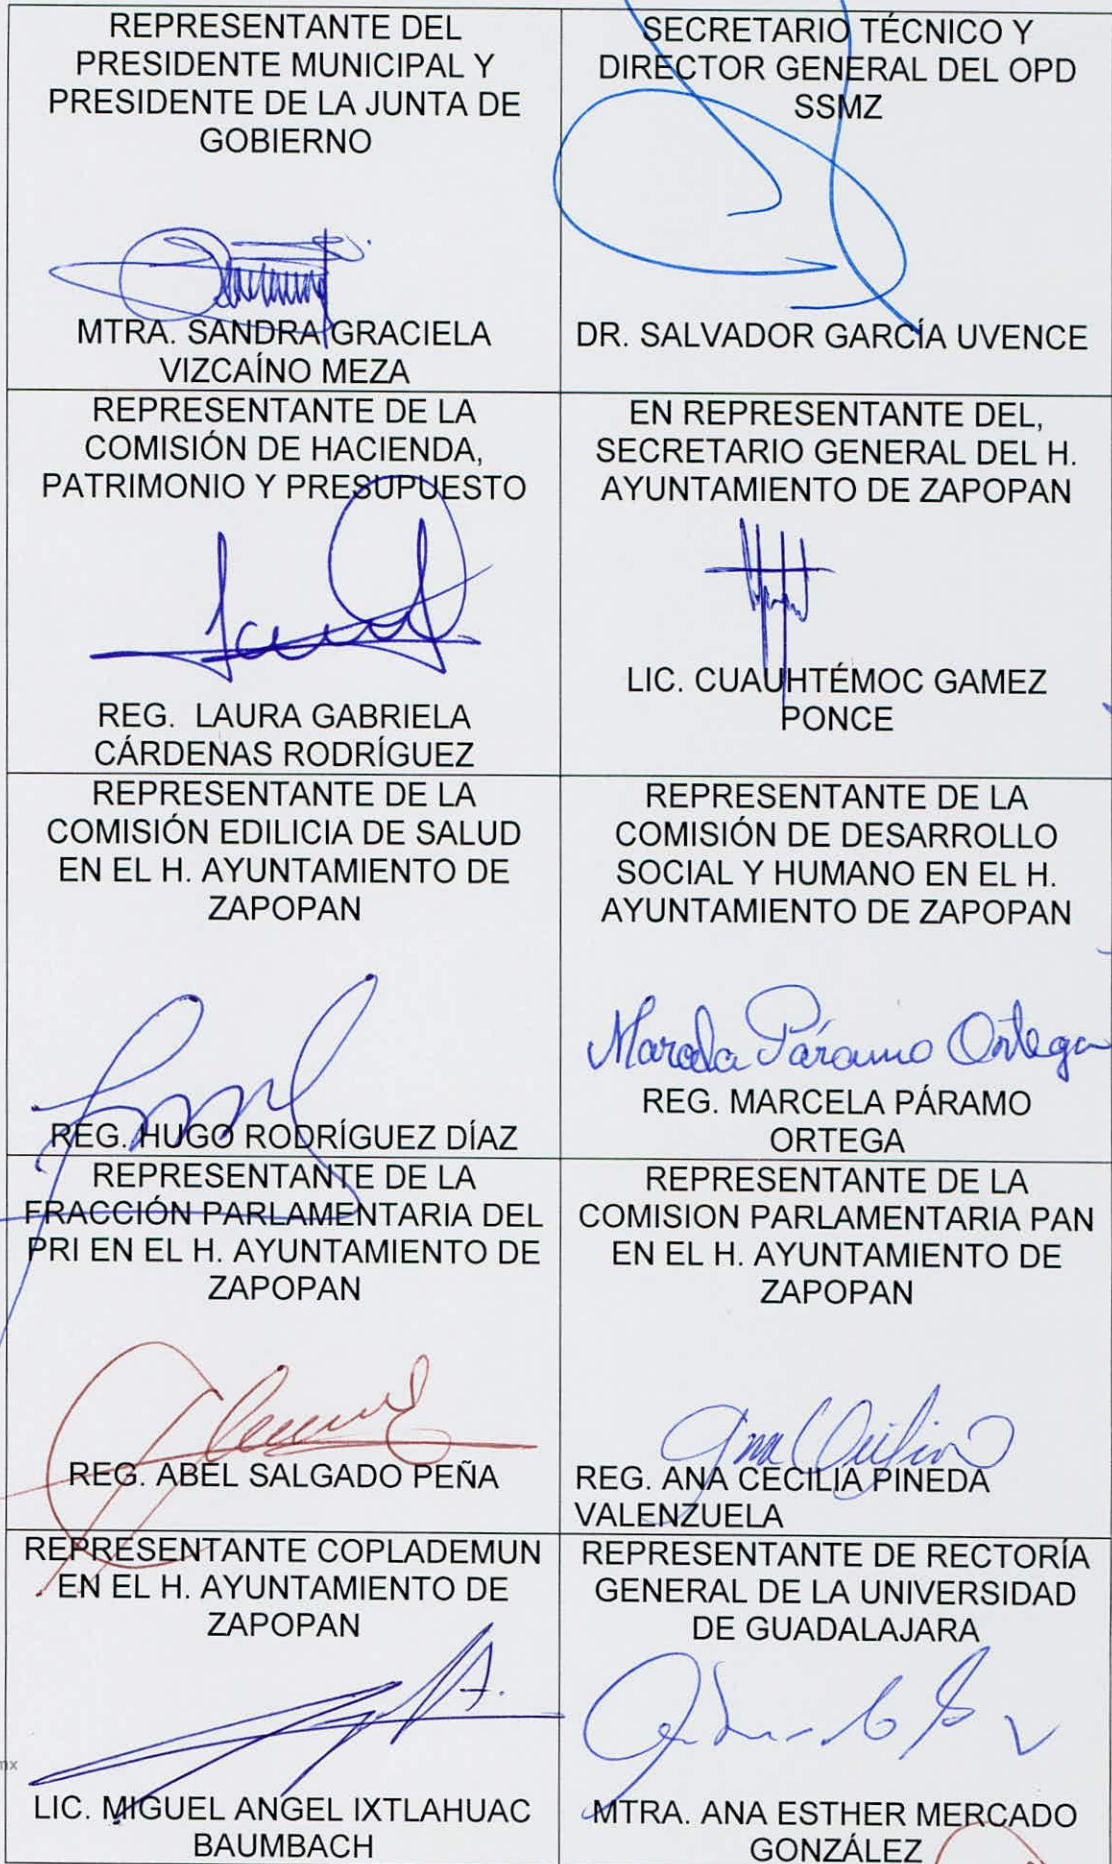 REPRESENTANTE DEL
PRESIDENTE MUNICIPAL Y
PRESIDENTE DE LA JUNTA DE
GOBIERNO
MTRA. SANDRA GRACIELA
VIZCAÍNO MEZA
SECRETARIO TÉCNICO Y
DIRECTOR GENERAL DEL OPD
SSMZ
DR. SALVADOR GARCÍA UVENCE
REPRESENTANTE DE LA
COMISIÓN DE HACIENDA,
PATRIMONIO Y PRESUPUESTO
REG. LAURA GABRIELA
CÁRDENAS RODRÍGUEZ
EN REPRESENTANTE DEL,
SECRETARIO GENERAL DEL H.
AYUNTAMIENTO DE ZAPOPAN
LIC. CUAUHTÉMOC GAMEZ
PONCE
REPRESENTANTE DE LA
COMISIÓN EDILICIA DE SALUD
EN EL H. AYUNTAMIENTO DE
ZAPOPAN
REG. HUGO RODRÍGUEZ DÍAZ
REPRESENTANTE DE LA
COMISIÓN DE DESARROLLO
SOCIAL Y HUMANO EN EL H.
AYUNTAMIENTO DE ZAPOPAN
Marcela Páramo Ortega
REG. MARCELA PÁRAMO
ORTEGA
REPRESENTANTE DE LA
FRACCIÓN PARLAMENTARIA DEL
PRI EN EL H. AYUNTAMIENTO DE
ZAPOPAN
REG. ABEL SALGADO PEÑA
REPRESENTANTE DE LA
COMISION PARLAMENTARIA PAN
EN EL H. AYUNTAMIENTO DE
ZAPOPAN
REG. ANA CECILIA PINEDA
VALENZUELA
REPRESENTANTE COPLADEMUN
EN EL H. AYUNTAMIENTO DE
ZAPOPAN
LIC. MIGUEL ANGEL IXTLAHUAC
BAUMBACH
REPRESENTANTE DE RECTORÍA
GENERAL DE LA UNIVERSIDAD
DE GUADALAJARA
MTRA. ANA ESTHER MERCADO
GONZÁLEZ